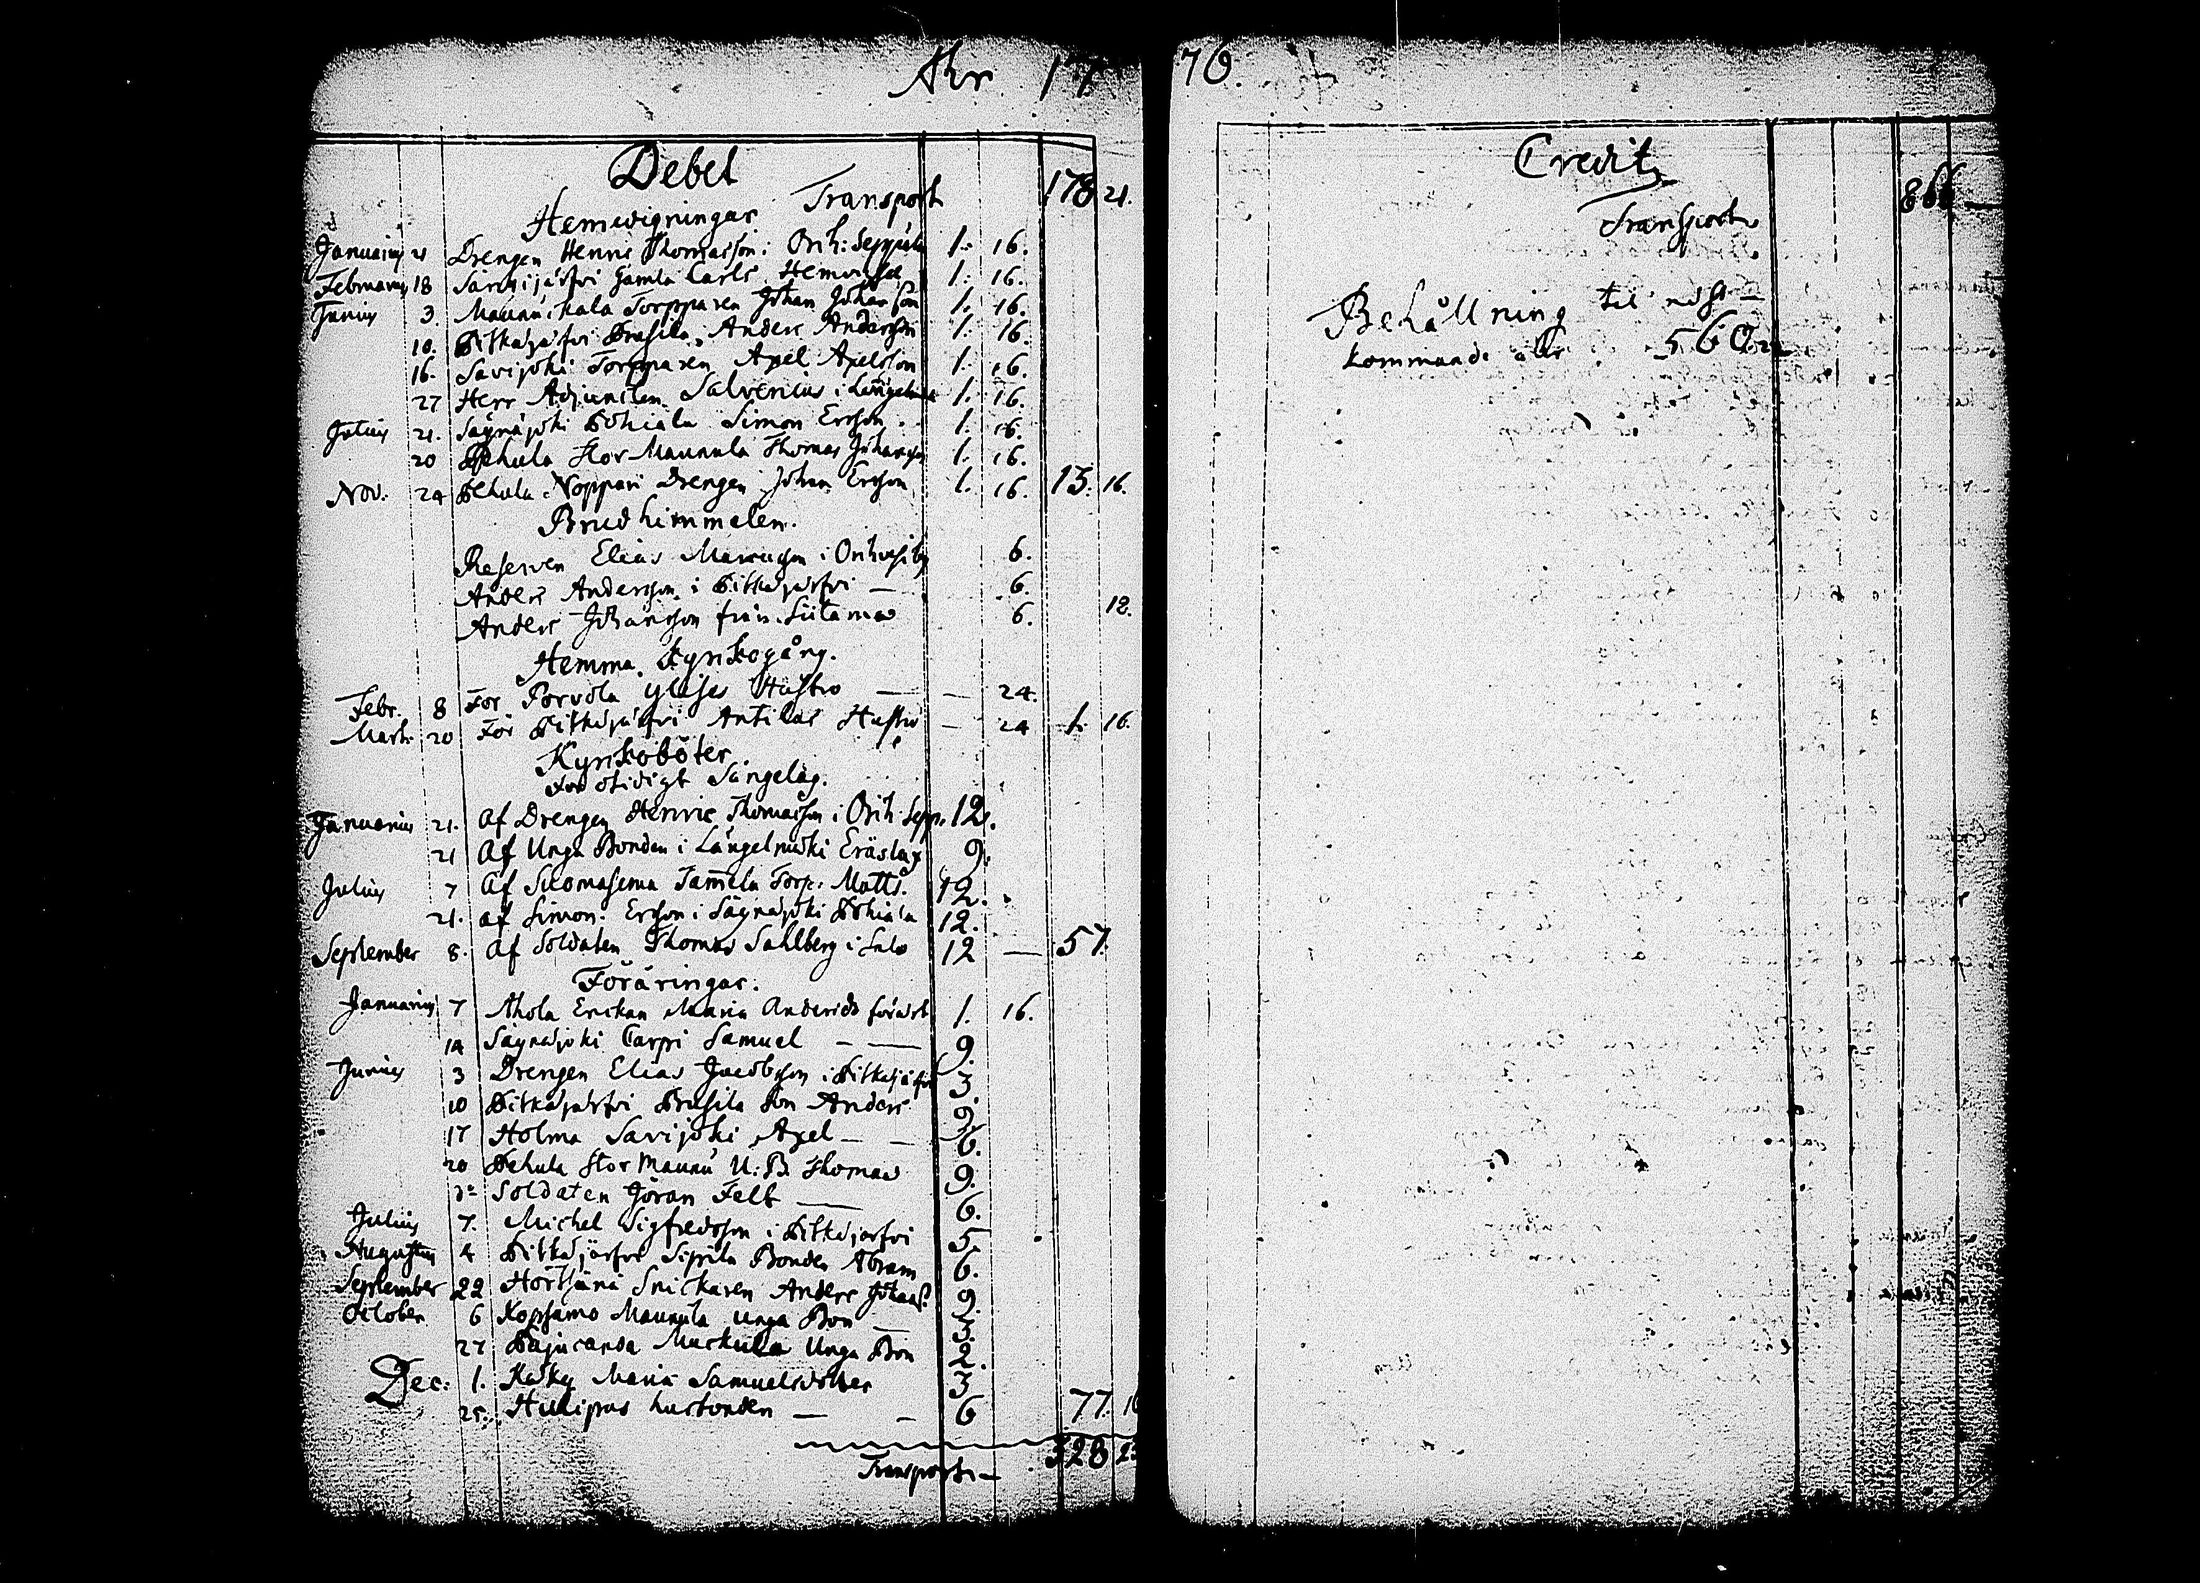 Åhr 1770.
Debet
Transport 178 21.
Hemvigningar
Januarius 21 Drengen Henric Thomasson i Orih: Seppälä 1: 16.
Februarius 18 Särkijärfvi Gamla Carls 1: 16.
Junius 3. Maunuskala Torpparen Johan Johansson 1. 16.
10. Pitkäjärfvi Prusila Anders Andersson 1. 16.
16. Savijoki Torpparen Axel Axelsson 1. 16.
27 Herr Adjuncten Salvenius i Längelmäki 1. 16.
Julius 21. Säynäjoki Pohiala Simon Ersson 1. 16.
20 Pehula Stor Maunula Thomas Johansson 1. 16.
Nov. 24 Pehula Noppari Drengen Johan Ersson 1. 16. 13. 16.
Brudhimmelen.
Reserven Elias Marcusson i Orihvesiby 6.
Anders Andersson i Pitkäjärfvi — 6.
Anders Johansson från Siitama 6. 12.
Hemma Kyrkogång.
Febr. 8 För Porvola Hustro — — 24.
Mart. 20 För Pitkäjärfvi Antilas Hustro — 24 1. 16.
Kyrkoböter
För otidigt Sängelag.
Januarius 21. Af Drengen Henric Thomasson i Orih. Sepp. 12.
21 Af Unga Bonden i Längelmäki Eräslax 9.
Julius 7 Af Suomasema Tammela Torp: Matts 12.
21. af Simon Ersson i Säynäjoki Pohiala 12.
September 8. Af Soldaten Thomas Sahlberg i Salo 12 — 57.
Föräringar.
Januarius 7 Ahola Erickan Maria Andersd förärt 1. 16.
14 Säynäjoki Carpi Samuel — — 9.
Junius 3 Drengen Elias Jacobsson i Pitkäjärfvi 3.
10 Pitkäjärfvi Prusila Son Anders 9.
17 Holma Savijoki Axel — — 6.
20 Pehula Stor Maunu U: B. Thomas 9.
do Soldaten Jöran Felt — 6.
Julius 7. Michel Sigfredsson i Pitkäjärfvi 5.
Augustus 4 Pitkäjärfvi Sipilä Bonden Abram 6.
September 22 Snickaren Anders Johans: 9.
October 6 Koppsamo Maunula unga Bon — 3.
27 Päjucanda Muckula Unga Bon 2.
Dec: 1. Käkky Maria Samuelsdotter 3
25. husbonden — — 6 77. 16
Transport — 328 23
Credit
Transport 866 —
Behållning til näst-
kommande åhr 560